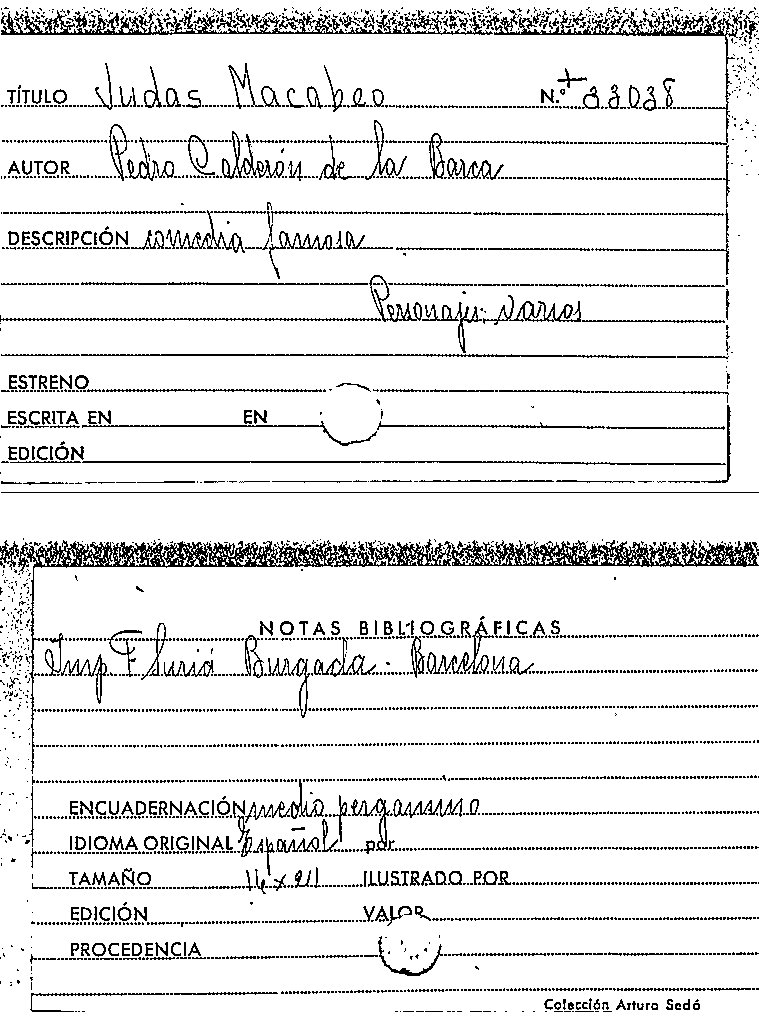 TÍTULO Judas Macabeo N.º + 33038
AUTOR Pedro Calderón de la Barca
DESCRIPCIÓN comedia famosa
Personajes: varios
ESTRENO
ESCRITA EN EN
EDICIÓN
NOTAS BIBLIOGRÁFICAS
Imp. F Suriá Burgada. Barcelona
ENCUADERNACIÓN medio pergamino
IDIOMA ORIGINAL Español por
TAMAÑO ILUSTRADO POR
EDICIÓN VALOR
PROCEDENCIA
Colección Arturo Sedó